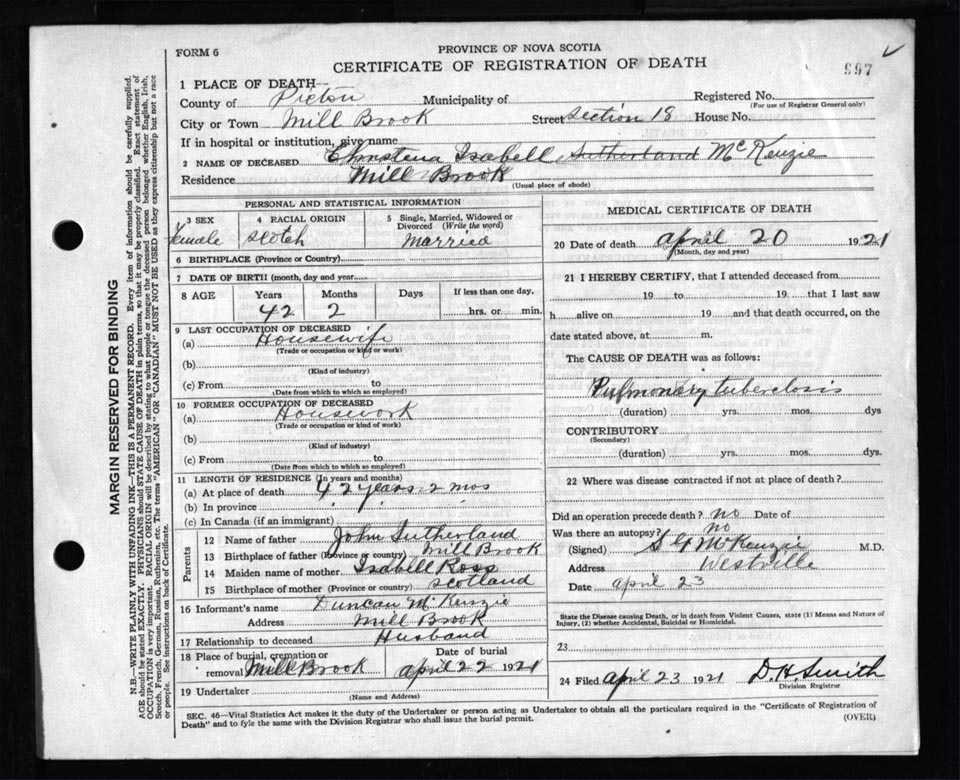 FORM 6
PROVINCE OF NOVA SCOTIA
CERTIFICATE OF REGISTRATION OF DEATH
997
1 PLACE OF DEATH—
County of Pictou Municipality of Registered No.
(For use of Registrar General only)
City or Town Mill Brook Street section 18 House No.
If in hospital or institution, give name
2 NAME OF DECEASED Christena Isabell Sutherland McKenzie
Residence Mill Brook
(Usual place of abode)
PERSONAL AND STATISTICAL INFORMATION
3 SEX 4 RACIAL ORIGIN 5 Single, Married, Widowed or Divorced (Write the word)
Female scotch married
6 BIRTHPLACE (Province or Country)
7 DATE OF BIRTH (month, day and year)
8 AGE Years Months Days If less than one day,
42 2 hrs. or min.
9 LAST OCCUPATION OF DECEASED
(a) Housewife
(Trade or occupation or kind of work)
(b)
(Kind of industry)
(c) From to
(Date from which to which so employed)
10 FORMER OCCUPATION OF DECEASED
(a) Housework
(Trade or occupation or kind of work)
(b)
(Kind of industry)
(c) From to
(Date from which to which so employed)
11 LENGTH OF RESIDENCE (In years and months)
(a) At place of death 42 years 2 mos
(b) In province " " "
(c) In Canada (if an immigrant)
Parents
12 Name of father John Sutherland
13 Birthplace of father (Province or country) Mill Brook
14 Maiden name of mother Isabell Ross
15 Birthplace of mother (Province or country) scotland
16 Informant's name Duncan McKenzie
Address Mill Brook
17 Relationship to deceased Husband
18 Place of burial, cremation or removal Mill Brook Date of burial april 22 1921
19 Undertaker
(Name and Address)
MEDICAL CERTIFICATE OF DEATH
20 Date of death april 20 1921
(Month, day and year)
21 I HEREBY CERTIFY, that I attended deceased from
19 to 19 that I last saw
h alive on 19 and that death occurred, on the
date stated above, at m.
The CAUSE OF DEATH was as follows:
Pulmonary tuberclosis
(duration) yrs. mos. dys
CONTRIBUTORY
(Secondary)
(duration) yrs. mos. dys.
22 Where was disease contracted if not at place of death?
Did an operation precede death? no Date of
Was there an autopsy? no
(Signed) S G McKenzie M.D.
Address Westville
Date april 23
State the Disease causing Death, or in death from Violent Causes, state (1) Means and Nature of
Injury, (2) whether Accidental, Suicidal or Homicidal.
23
24 Filed april 23 1921 D.H. Smith
Division Registrar
SEC. 46—Vital Statistics Act makes it the duty of the Undertaker or person acting as Undertaker to obtain all the particulars required in the "Certificate of Registration of
Death" and to fyle the same with the Division Registrar who shall issue the burial permit.
(OVER)
MARGIN RESERVED FOR BINDING
N.B.—WRITE PLAINLY WITH UNFADING INK—THIS IS A PERMANENT RECORD. Every item of information should be carefully supplied.
AGE should be stated EXACTLY. PHYSICIANS should STATE CAUSE OF DEATH in plain terms, so that it may be properly classified. Exact statement of
OCCUPATION is very important. RACIAL ORIGIN will be described by stating to what people or tongue the deceased person belonged whether English, Irish,
Scotch, French, German, Russian, Ruthenian, etc. The terms "AMERICAN" OR "CANADIAN" MUST NOT BE USED as they express citizenship but not a race
or people. See instructions on back of Certificate.